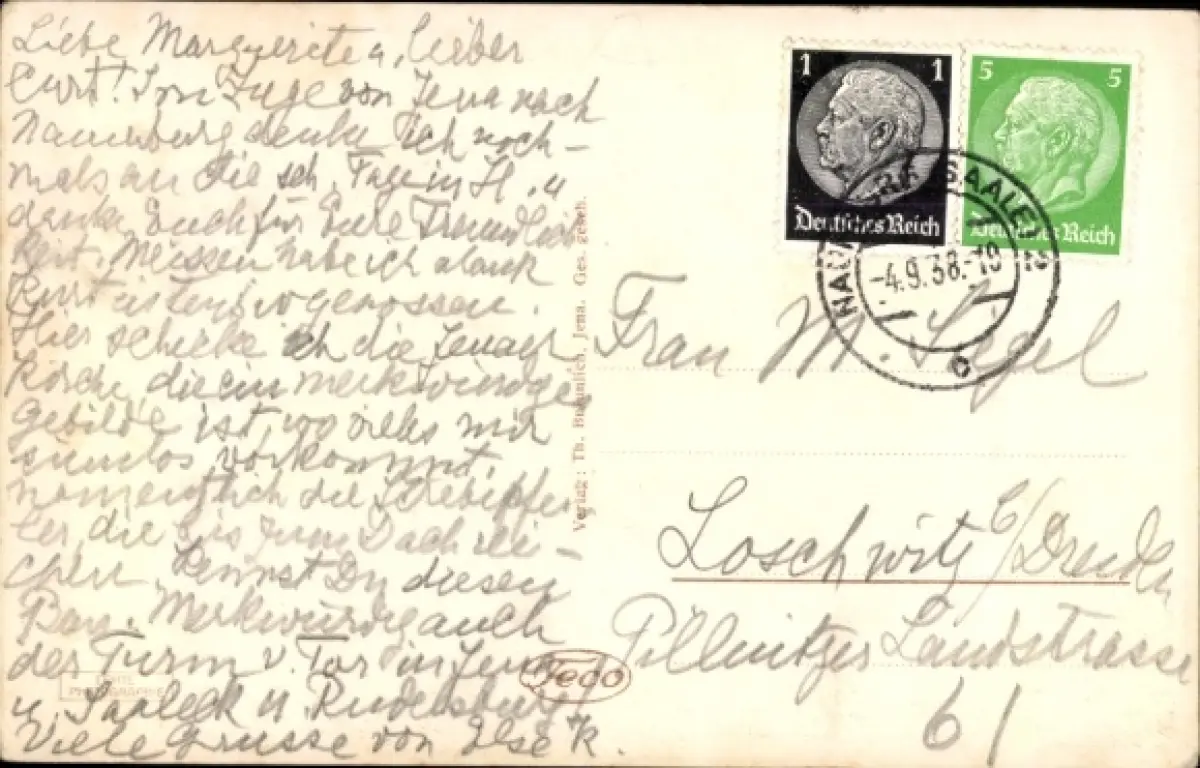 Liebe Marguerite u. lieber
Curt! Im Zuge von Jena nach
Naumburg denke ich noch-
mals an die sch. Tage in H. u
danke Euch für Eure Freundlich
keit. Meissen habe ich
genossen.
Hier schicke ich die Jenaer
Kirche, die ein merkwürdiges
Gebilde ist, wo vieles mir
sinnlos vorkommt,
namentlich die Strebepfei
ler, die bis zum Dach rei-
chen. Kennst Du diesen
Bau. Merkwürdig auch
der Turm v. Tor in Jena
u. Saaleck u Rudelsburg
Viele Grüsse von Else K.
ECHTE
PHOTOGRAPHIE
Verlag: Th. Jena. Ges. gesch.
Feco
1 1
Deutsches Reich
5 5
Deutsches Reich
NAUMBURG (SAALE) 2
-4.9.38.-19
o
Frau M. Siegel
Loschwitz b/Dresden
Pillnitzer Landstrasse
61